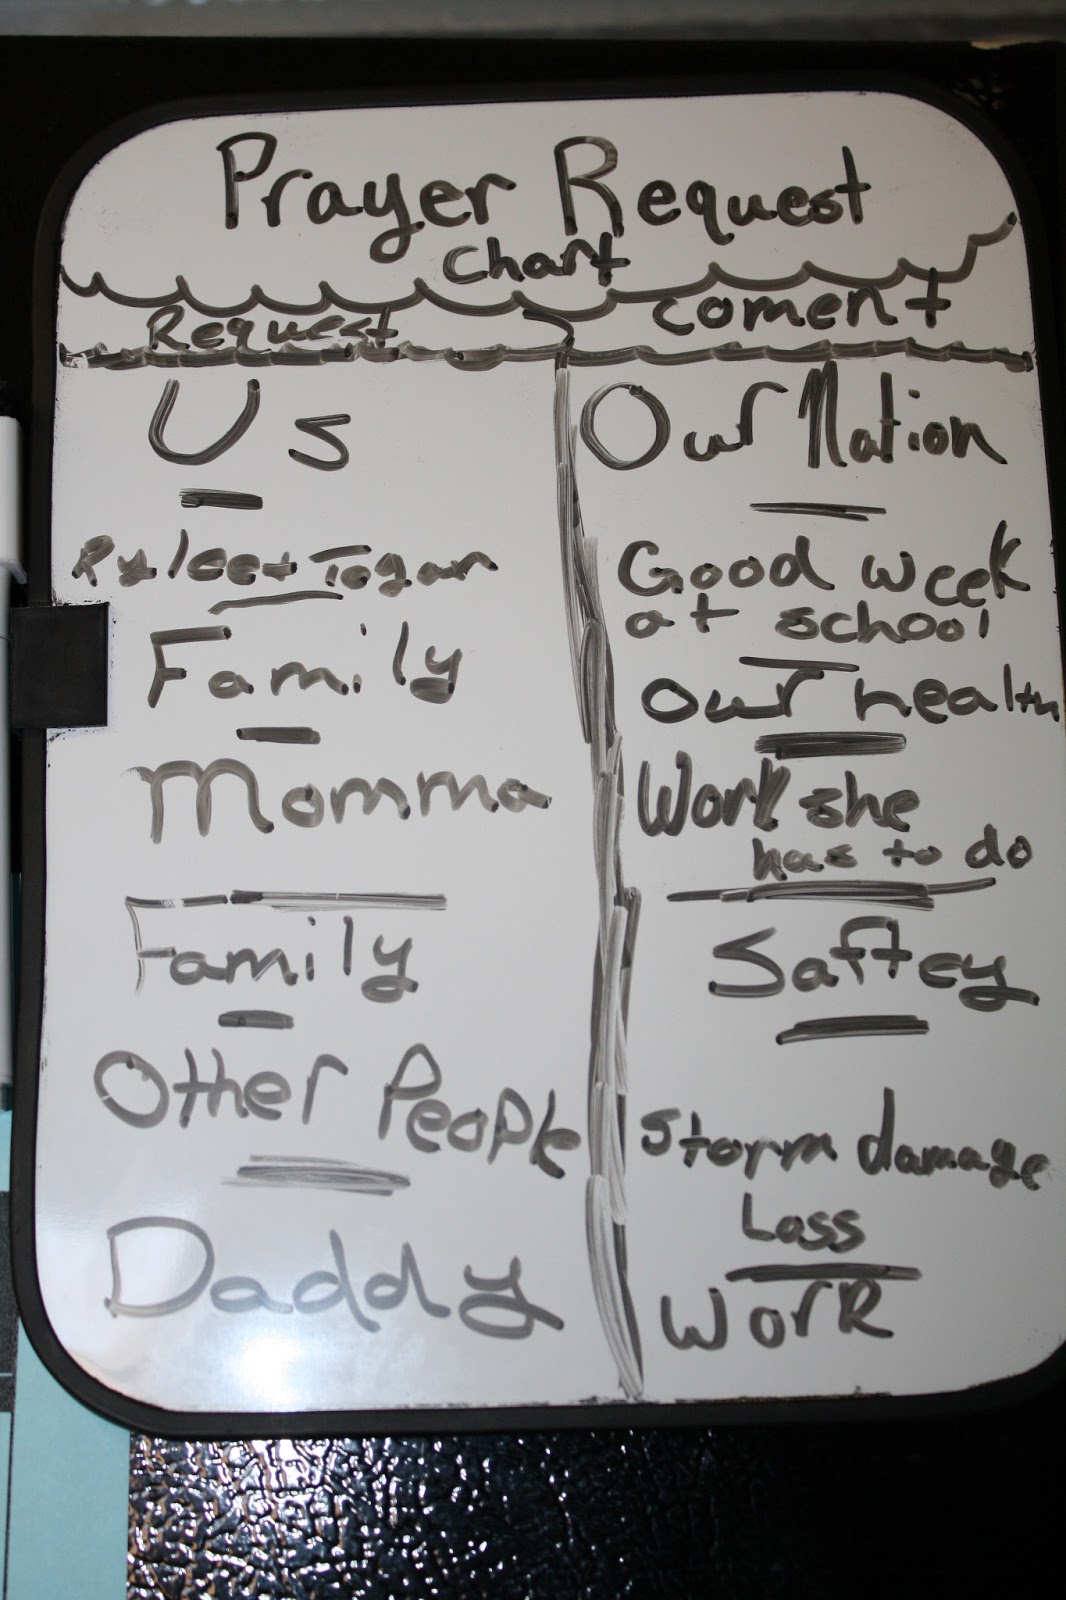 Prayer Request
Chart
Request coment
Us Our Nation
Rylee + Togan Good week
at school
Family Our health
Momma Work she
has to do
Family Saftey
Other People Storm damage
Loss
Daddy Work